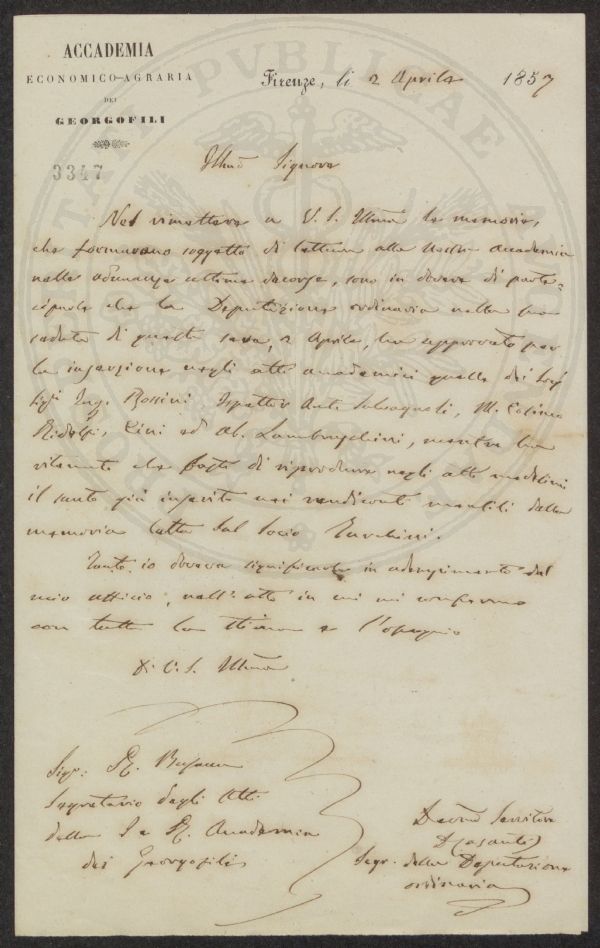 ACCADEMIA
ECONOMICO-AGRARIA
DEI
GEORGOFILI
Firenze, li 2 Aprile 1857
3347
Illmo Signore
Nel rimettere a V. S. Illma le memorie,
che formarono soggetto di lettura alla nostra Accademia
nelle adunanze ultime decorse, sono in dovere di parte-
ciparle che la Deputazione ordinaria nella sua
seduta di questa sera, 2 Aprile, ha approvato per
la inserzione negli atti accademici quelle dei
Sigi Ing. Rossini, Ispettor Ante Salvagnoli, M. Cosimo
Ridolfi, Cini ed Ab. Lambruschini, mentre ha
ritenuto che basti di riprodurre negli atti medesimi
il sunto già inserito nei rendiconti mensili della
memoria letta dal socio
Tanto io doveva significarle in adempimento del
mio officio, nell'atto in cui mi confermo
con tutta la stima e l'ossequio
Di V. S. Illma
Sigr:
Segretario degli Atti
della I e R. Accademia
dei Georgofili
Devmo Servitore
Segr. della Deputazione
ordinaria